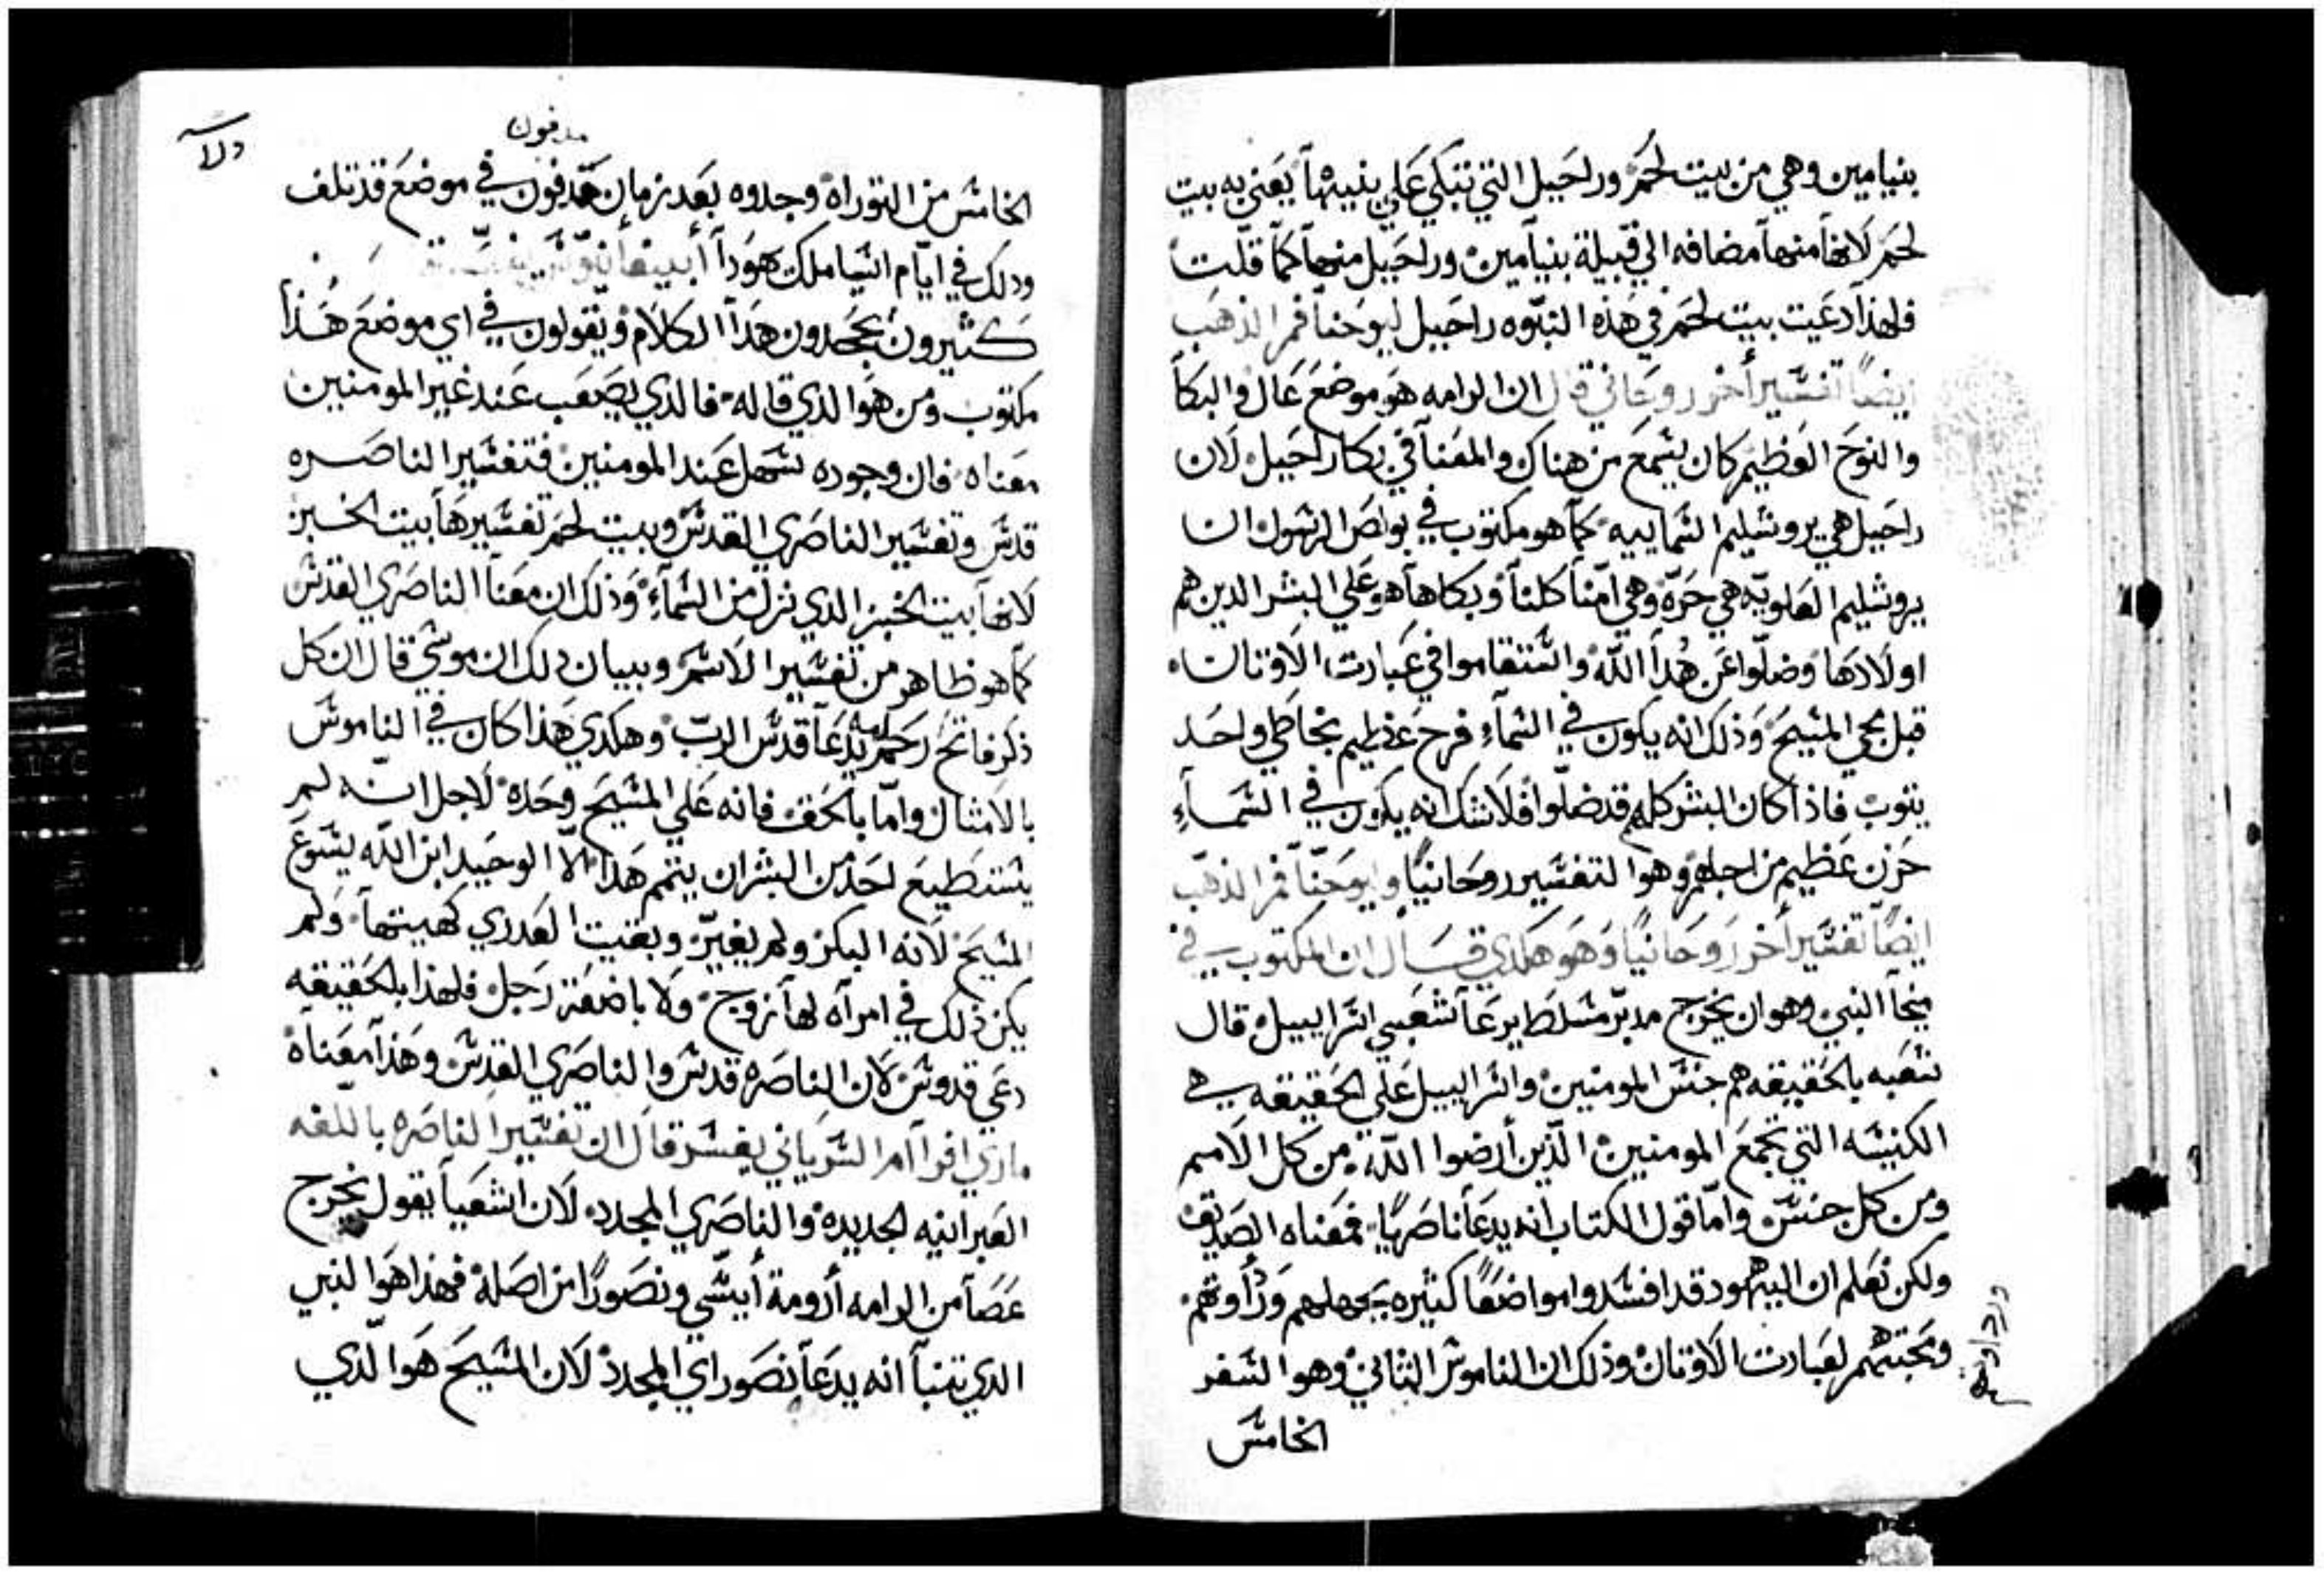 بنيامين وهي من بيت لحم وراحيل التي تبكي علي بنيها يعني به بيت
لحم لانها منها مضافه الي قبيلة بنيامين وراحيل منها كما قلت
فلهذا دعيت بيت لحم في هذه النبوه راحيل ليوحنا فم الذهب
ايضًا تفسير أخر روحاني قال ان الرامه هو موضع عال والبكا
والنوح العظيم كان يسمع من هناك والمعنا في بكا راحيل لان
راحيل هي يروشليم السماييه كما هو مكتوب في بولص الرسول ان
يروشليم العلويه هي حرّة وهي امّنا كلنا وبكاها هو علي البشر الدين هم
اولادها وضلّوا عن هُدا اللّه واستقاموا في عبادت الاوتان
قبل مجي المسيح وذلك انه يكون في السماءِ فرح عظيم بخاطي واحد
يتوب فاذا كان البشر كلهم قد ضلّوا فلا شك انه يكون في السماءِ
حزن عظيم من اجلهم وهو التفسير روحانيًا وليوحنّا فم الذهب
ايضًا تفسير أخر روحانيًا وهو هكدي قال ان المكتوب في
ميخا النبي وهو ان يخرج مدبّر مسلط يرعا شعبي اسراييل قال
شعبه بالحقيقه هم جنس المومنين واسراييل علي الحقيقه هي
الكنيسه التي تجمع المومنين الّذين أرضوا اللّه من كل الامم
ومن كل جنس وامّا قول الكتاب انه يدعا ناصريًا فمعناه الصديق
ولكن نعلم ان اليهود قد افسدوا مواضعًا كثيره بجهلهم ورداوتهم
ومحبتهم لعبادت الاوتان وذلك ان الناموس الثاني وهو السفر
ورداوة
الخامس
مدفون
الخامس من التوراة وجدوه بعد زمان مدفون في موضع قد تلف
ودلك في ايّام اشيا ملك هودا
كثيرون يجحدون هدا الكلام ويقولون في اي موضع هذا
مكتوب ومن هو الذي قاله فالدي يصعب عند غير المومنين
معناه فان وجوده سهل عند المومنين فتفسير الناصره
قدس وتفسير الناصري القدس وبيت لحم تفسيرها بيت الخبز
لانها بيت الخبز الدي نزل من السماءِ وذلك ان معنا الناصري القدس
كما هو ظاهر من تفسير الاسم وبيان دلك ان موسي قال ان كل
ذكر فاتح رحم امه يدعا قدس الربّ وهكدي هذا كان في الناموس
بالامثال وامّا بالحق فانه علي المسيح وحده لاجل انه لم
يستطيع احد من البشر ان يتمم هذا الّا الوحيد ابن اللّه يسوع
المسيح لانه البكر ولم يغيّر وبقيت العدري كهيتها ولم
يكن ذلك في امراه لها زوج ولا باضفة رجل فلهذا بالحقيقه
دعي قدوس لان الناصره قدس والناصري القدس وهذا معناه
ماري افرآم السرياني يفسر قال ان تفسير الناصره باللغه
العبرانيه الجديده والناصري المجدد لان اشعيا يقول يخرج
عصا من الرامه أرومة أيسّي ونصورًا من اصله فهذا هو النبي
الدي تنبا انه يدعا نصور اي المجدد لان المسيح هو الّدي